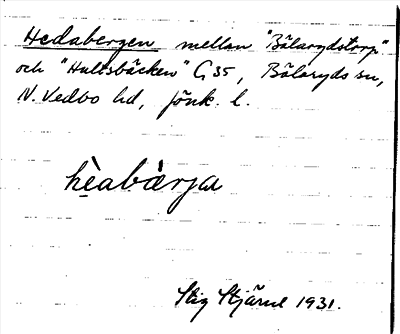 Hedabergen mellan "Bälarydstorp"
och "Hultsbäcken" G 35, Bälaryds sn,
N. Vedbo hd, Jönk. l.
hèabæ̀rja
Stig Stjärne 1931.